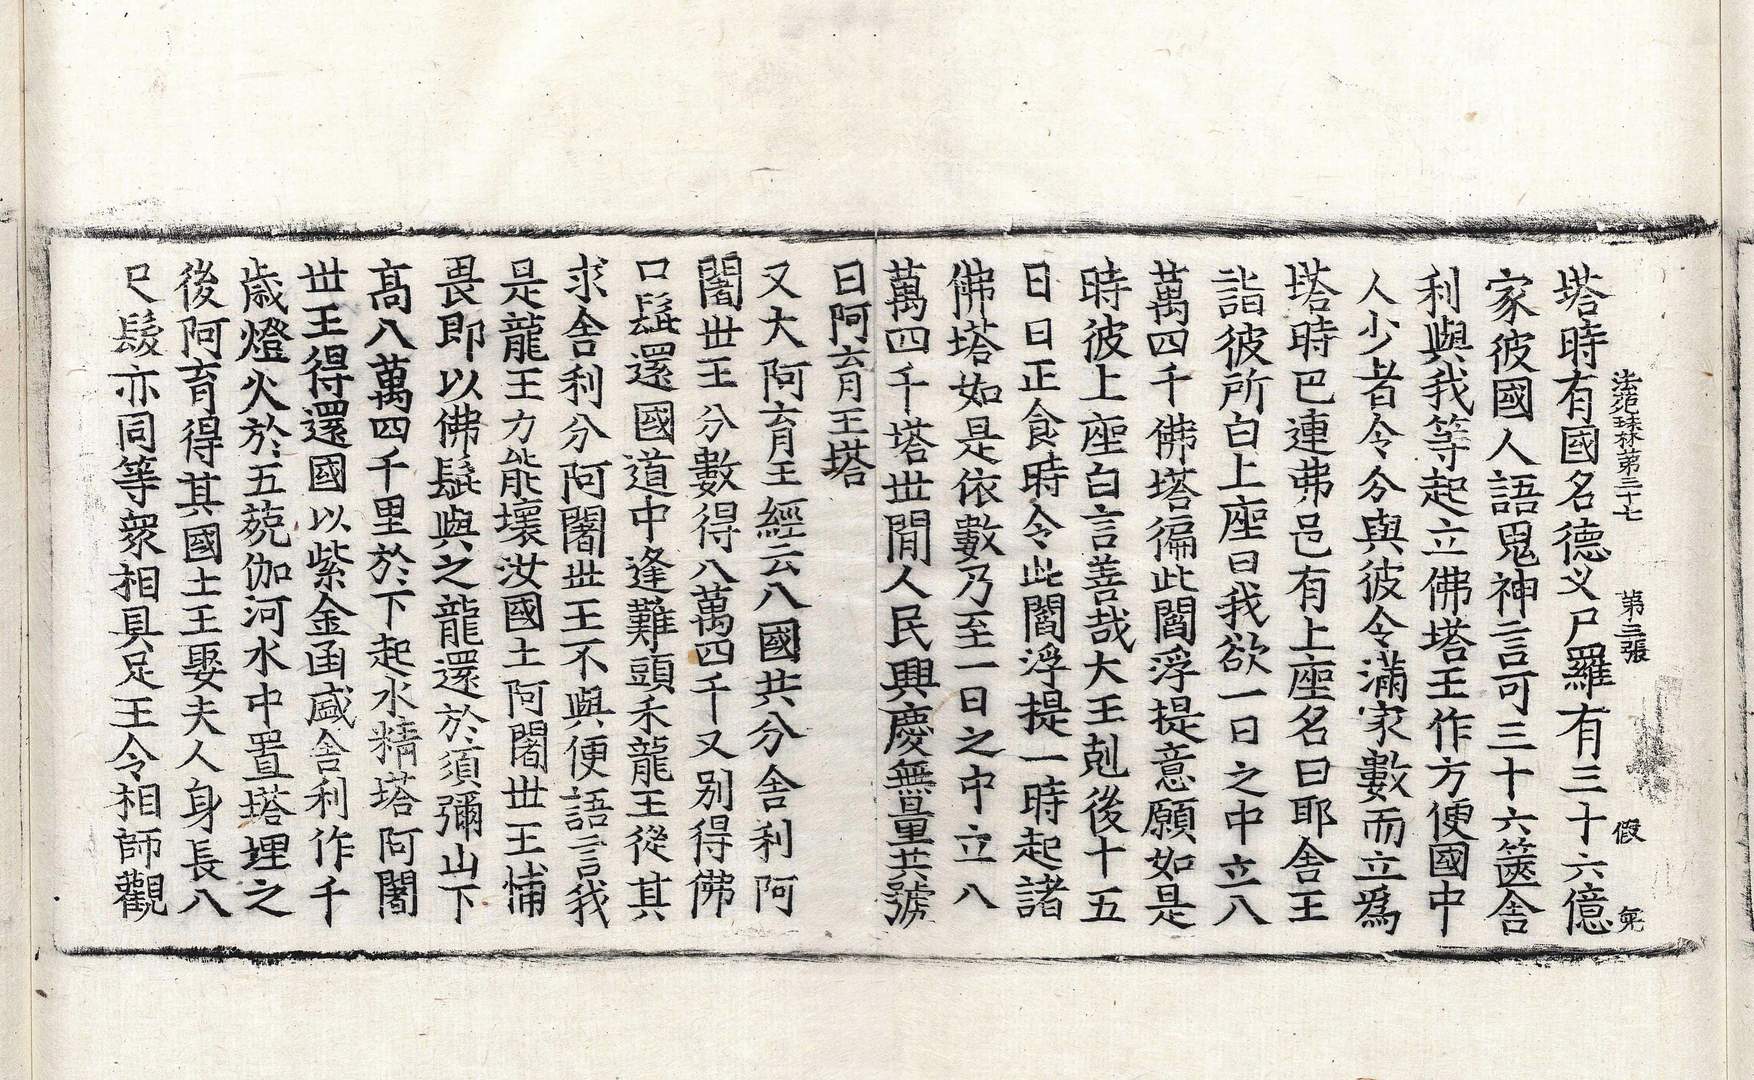 法苑珠林第三十七　第三張　假
塔時有國名德叉尸羅有三十六億
家彼國人語鬼神言可三十六篋舍
利與我等起立佛塔王作方便國中
人少者令分與彼令滿家數而立爲
塔時巴連弗邑有上座名曰耶舍王
詣彼所白上座曰我欲一日之中立八
萬四千佛塔徧此閻浮提意願如是
時彼上座白言善哉大王剋後十五
日日正食時令此閻浮提一時起諸
佛塔如是依數乃至一日之中立八
萬四千塔世閒人民興慶無量共號
曰阿育王塔
又大阿育王經云八國共分舍利阿
闍世王分數得八萬四千又别得佛
口髭還國道中逢難頭禾龍王從其
求舍利分阿闍世王不與便語言我
是龍王力能壞汝國土阿闍世王怖
畏即以佛髭與之龍還於須彌山下
高八萬四千里於下起水精塔阿闍
世王得還國以紫金函盛舍利作千
歲燈火於五菀伽河水中置塔埋之
後阿育得其國土王娶夫人身長八
尺髮亦同等衆相具足王令相師觀